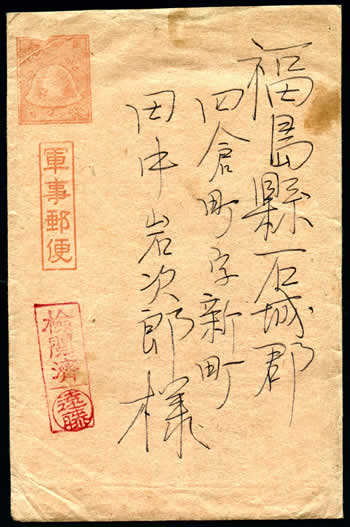 福島縣石城郡
四倉町字新町
田中岩次郎様
軍事郵便
検閲済
遠藤